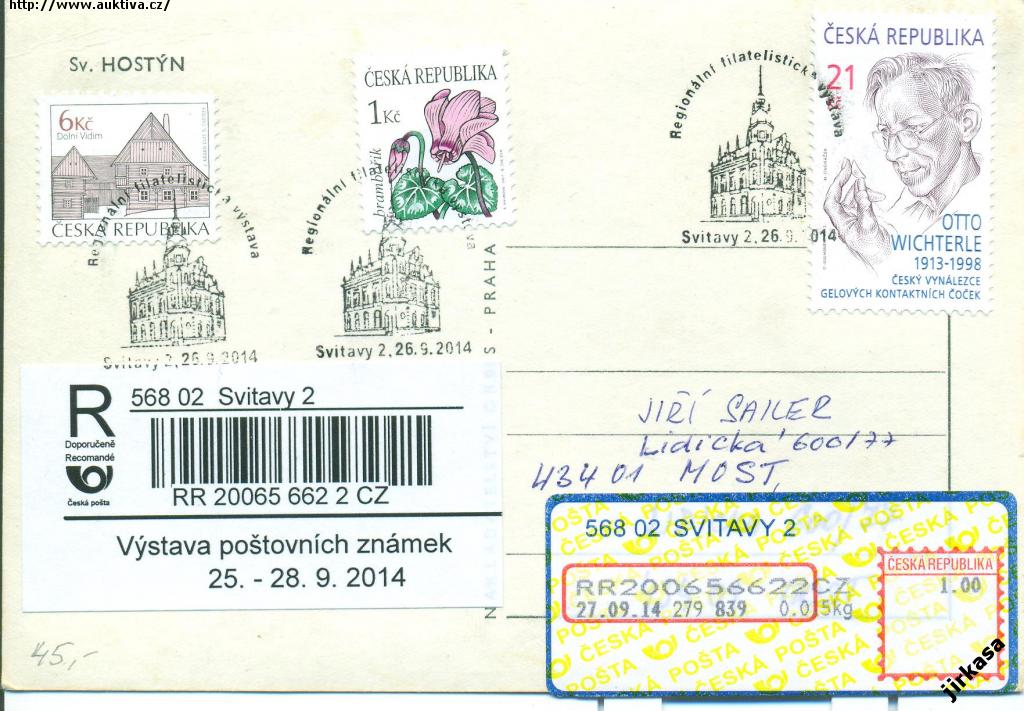 http://www.auktiva.cz/
Sv. HOSTÝN
6Kč
Dolní Vidim
ČESKÁ REPUBLIKA
ČESKÁ REPUBLIKA
1Kč
brambořík
ČESKÁ REPUBLIKA
21
OTTO
WICHTERLE
1913-1998
ČESKÝ VYNÁLEZCE
GELOVÝCH KONTAKTNÍCH ČOČEK
Regionální filatelistická výstava
Svitavy 2, 26.9.2014
Regionální filatelistická výstava
Svitavy 2, 26.9.2014
Regionální filatelistická výstava
Svitavy 2, 26.9.2014
S - PRAHA
R
Doporučeně
Recomandé
Česká pošta
568 02 Svitavy 2
RR 20065 662 2 CZ
Výstava poštovních známek
25. - 28. 9. 2014
JIŘÍ SAILER
Lidická 600/77
43401 MOST,
568 02 SVITAVY 2
RR200656622CZ
27.09.14 279 839 0.015kg
ČESKÁ REPUBLIKA
1.00
ČESKÁ POŠTA
45,-
jirkasa